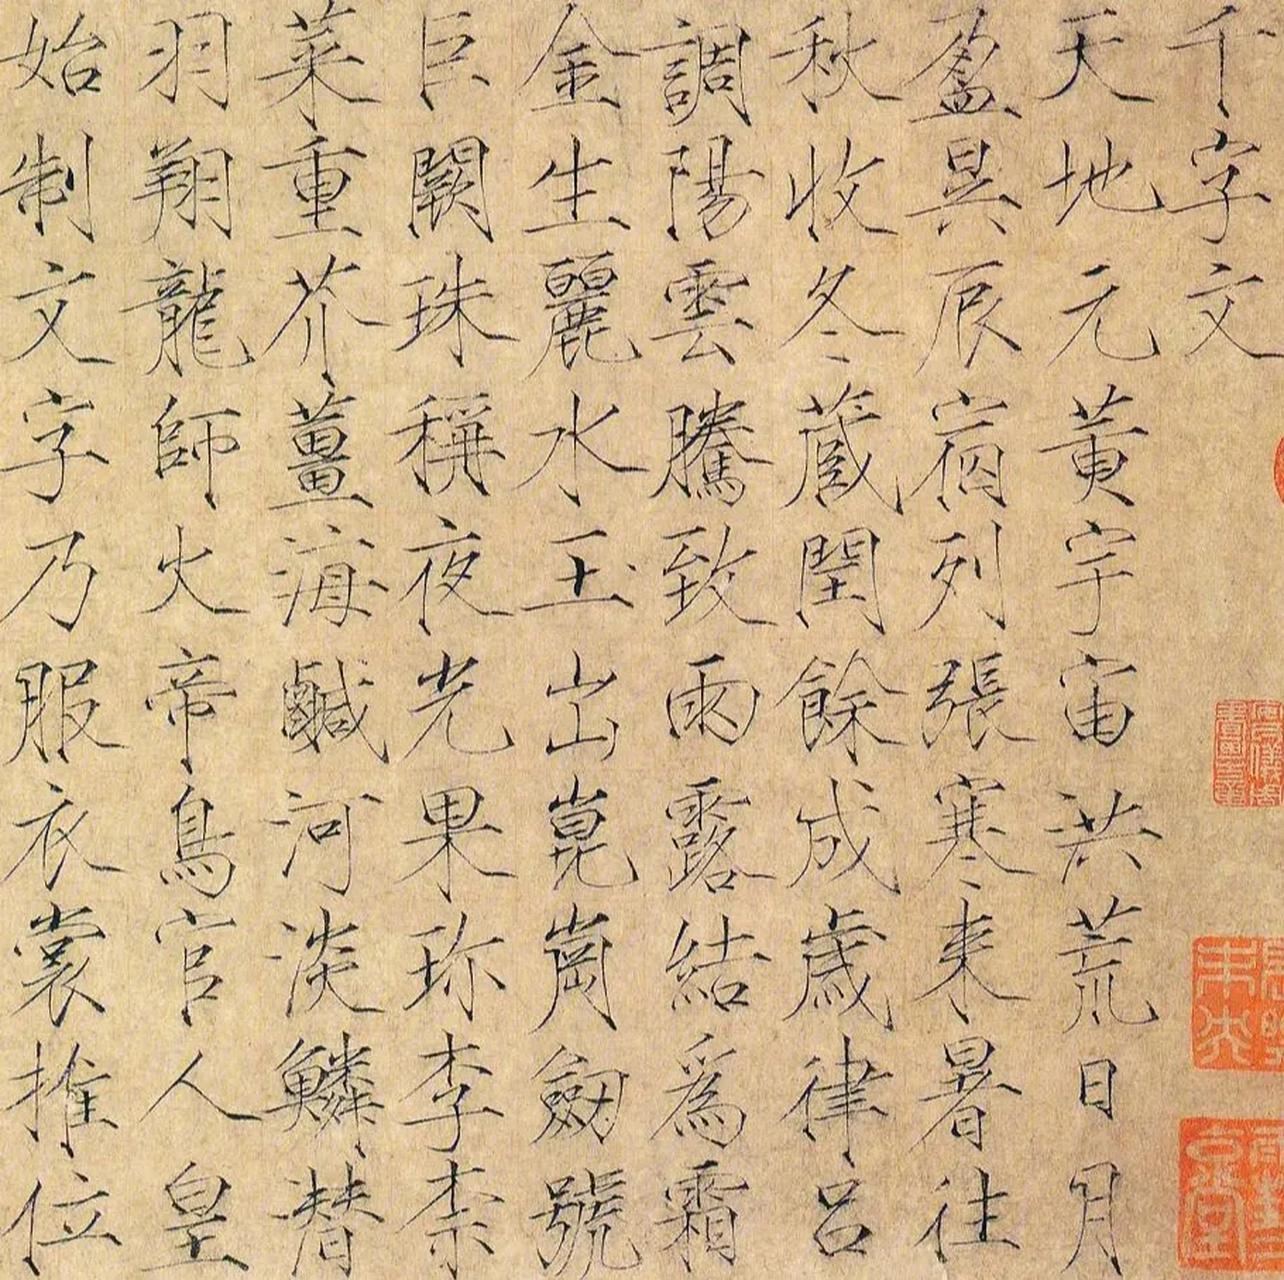 千字文
天地元黃宇宙洪荒日月
盈昃辰宿列張寒来暑往
秋收冬蔵閏餘成歳律呂
調陽雲騰致雨露結爲霜
金生麗水玉出崑崗劒號
巨闕珠稱夜光果珎李柰
菜重芥薑海鹹河淡鱗潛
羽翔龍師火帝鳥官人皇
始制文字乃服衣裳推位